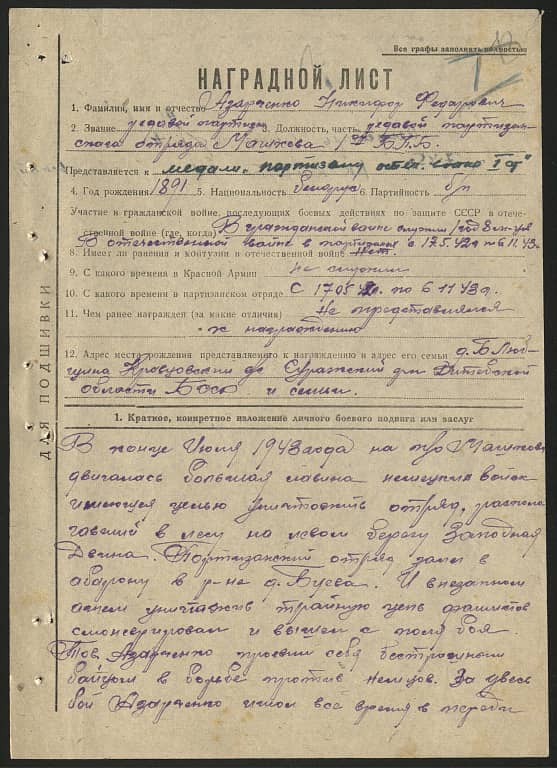 Все графы заполнять полностью
НАГРАДНОЙ ЛИСТ
1. Фамилия, имя и отчество Азарченко Никифор Федарович
2. Звание редавой партизан 3. Должность, часть редавой партизан-
ского отряда Машкова 1ой Б.П.Б.
Представляется к медали „партизану отеч. войно I ст"
4. Год рождения 1891 5. Национальность белорус 6. Партийность б/п
Участие в гражданской войне, последующих боевых действиях по защите СССР в отече-
ственной войне (где, когда) В гражданской войне служил 1 год
В отечественной войне в партизанах с 17.5.42г по 6.11.43г.
8. Имеет ли ранения и контузии в отечественной войне Нет.
9. С какого времени в Красной Армии Не служил
10. С какого времени в партизанском отряде С 17 05 42г. по 6 11 43г.
11. Чем ранее награжден (за какие отличия) Не представлялся
к награждению
12. Адрес места рождения представляемого к награждению и адрес его семьи д. Б. Люб-
щина Суражский р-н Витебской
области БССР и семьи.
ДЛЯ ПОДШИВКИ
1. Краткое, конкретное изложение личного боевого подвига или заслуг
В конце Июля 1943 года на п/о Машкова
двигалась большая лавина немецких войск
имеющая целью уничтожить отряд, располо
гавший в лесу на левом берегу Западная
Двина. Партизанский отряд занял
абарону в р-не д. Буева. И внезапным
агнем уничтажив трайную цепь фашистов
и вышел с поля боя.
Тов. Азарченко проевил себя бестрашным
байцом в борьбе против немцов. За цвесь
бой Азарченко шол всё время в переди